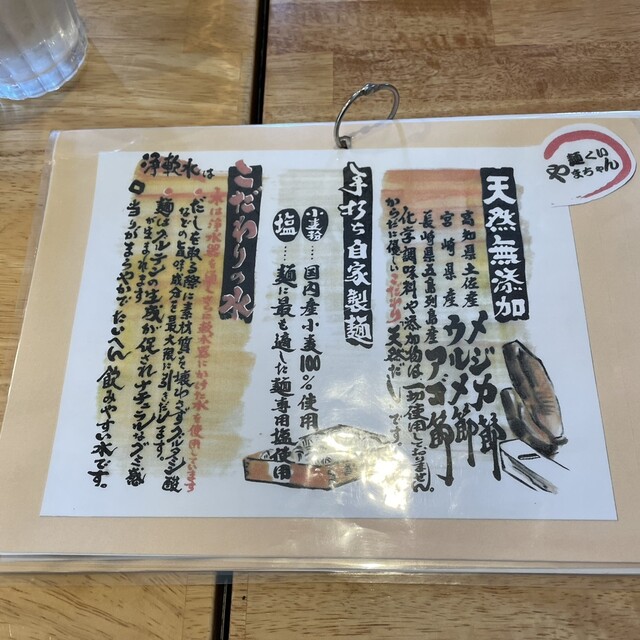 麺くい
やまちゃん
天然無添加
高知県土佐産 メジカ節
宮崎県産 ウルメ節
長崎県五島列島産 アゴ節
化学調味料や添加物は一切使用しておりません。
からだに優しいこだわり天然だしです。
手打ち自家製麺
小麦粉…国内産小麦100%使用
塩…麺に最も適した麺専用塩使用
こだわりの水
水は浄水器を通しさらに軟水器にかけた水を使用しています
浄軟水は
・だしを取る際に素材質を壊わさずイノシン酸
などのだし成分を最大限に引きだします。
・麺はグルテンの生成が促されナチュラルなコシが
生まれます。